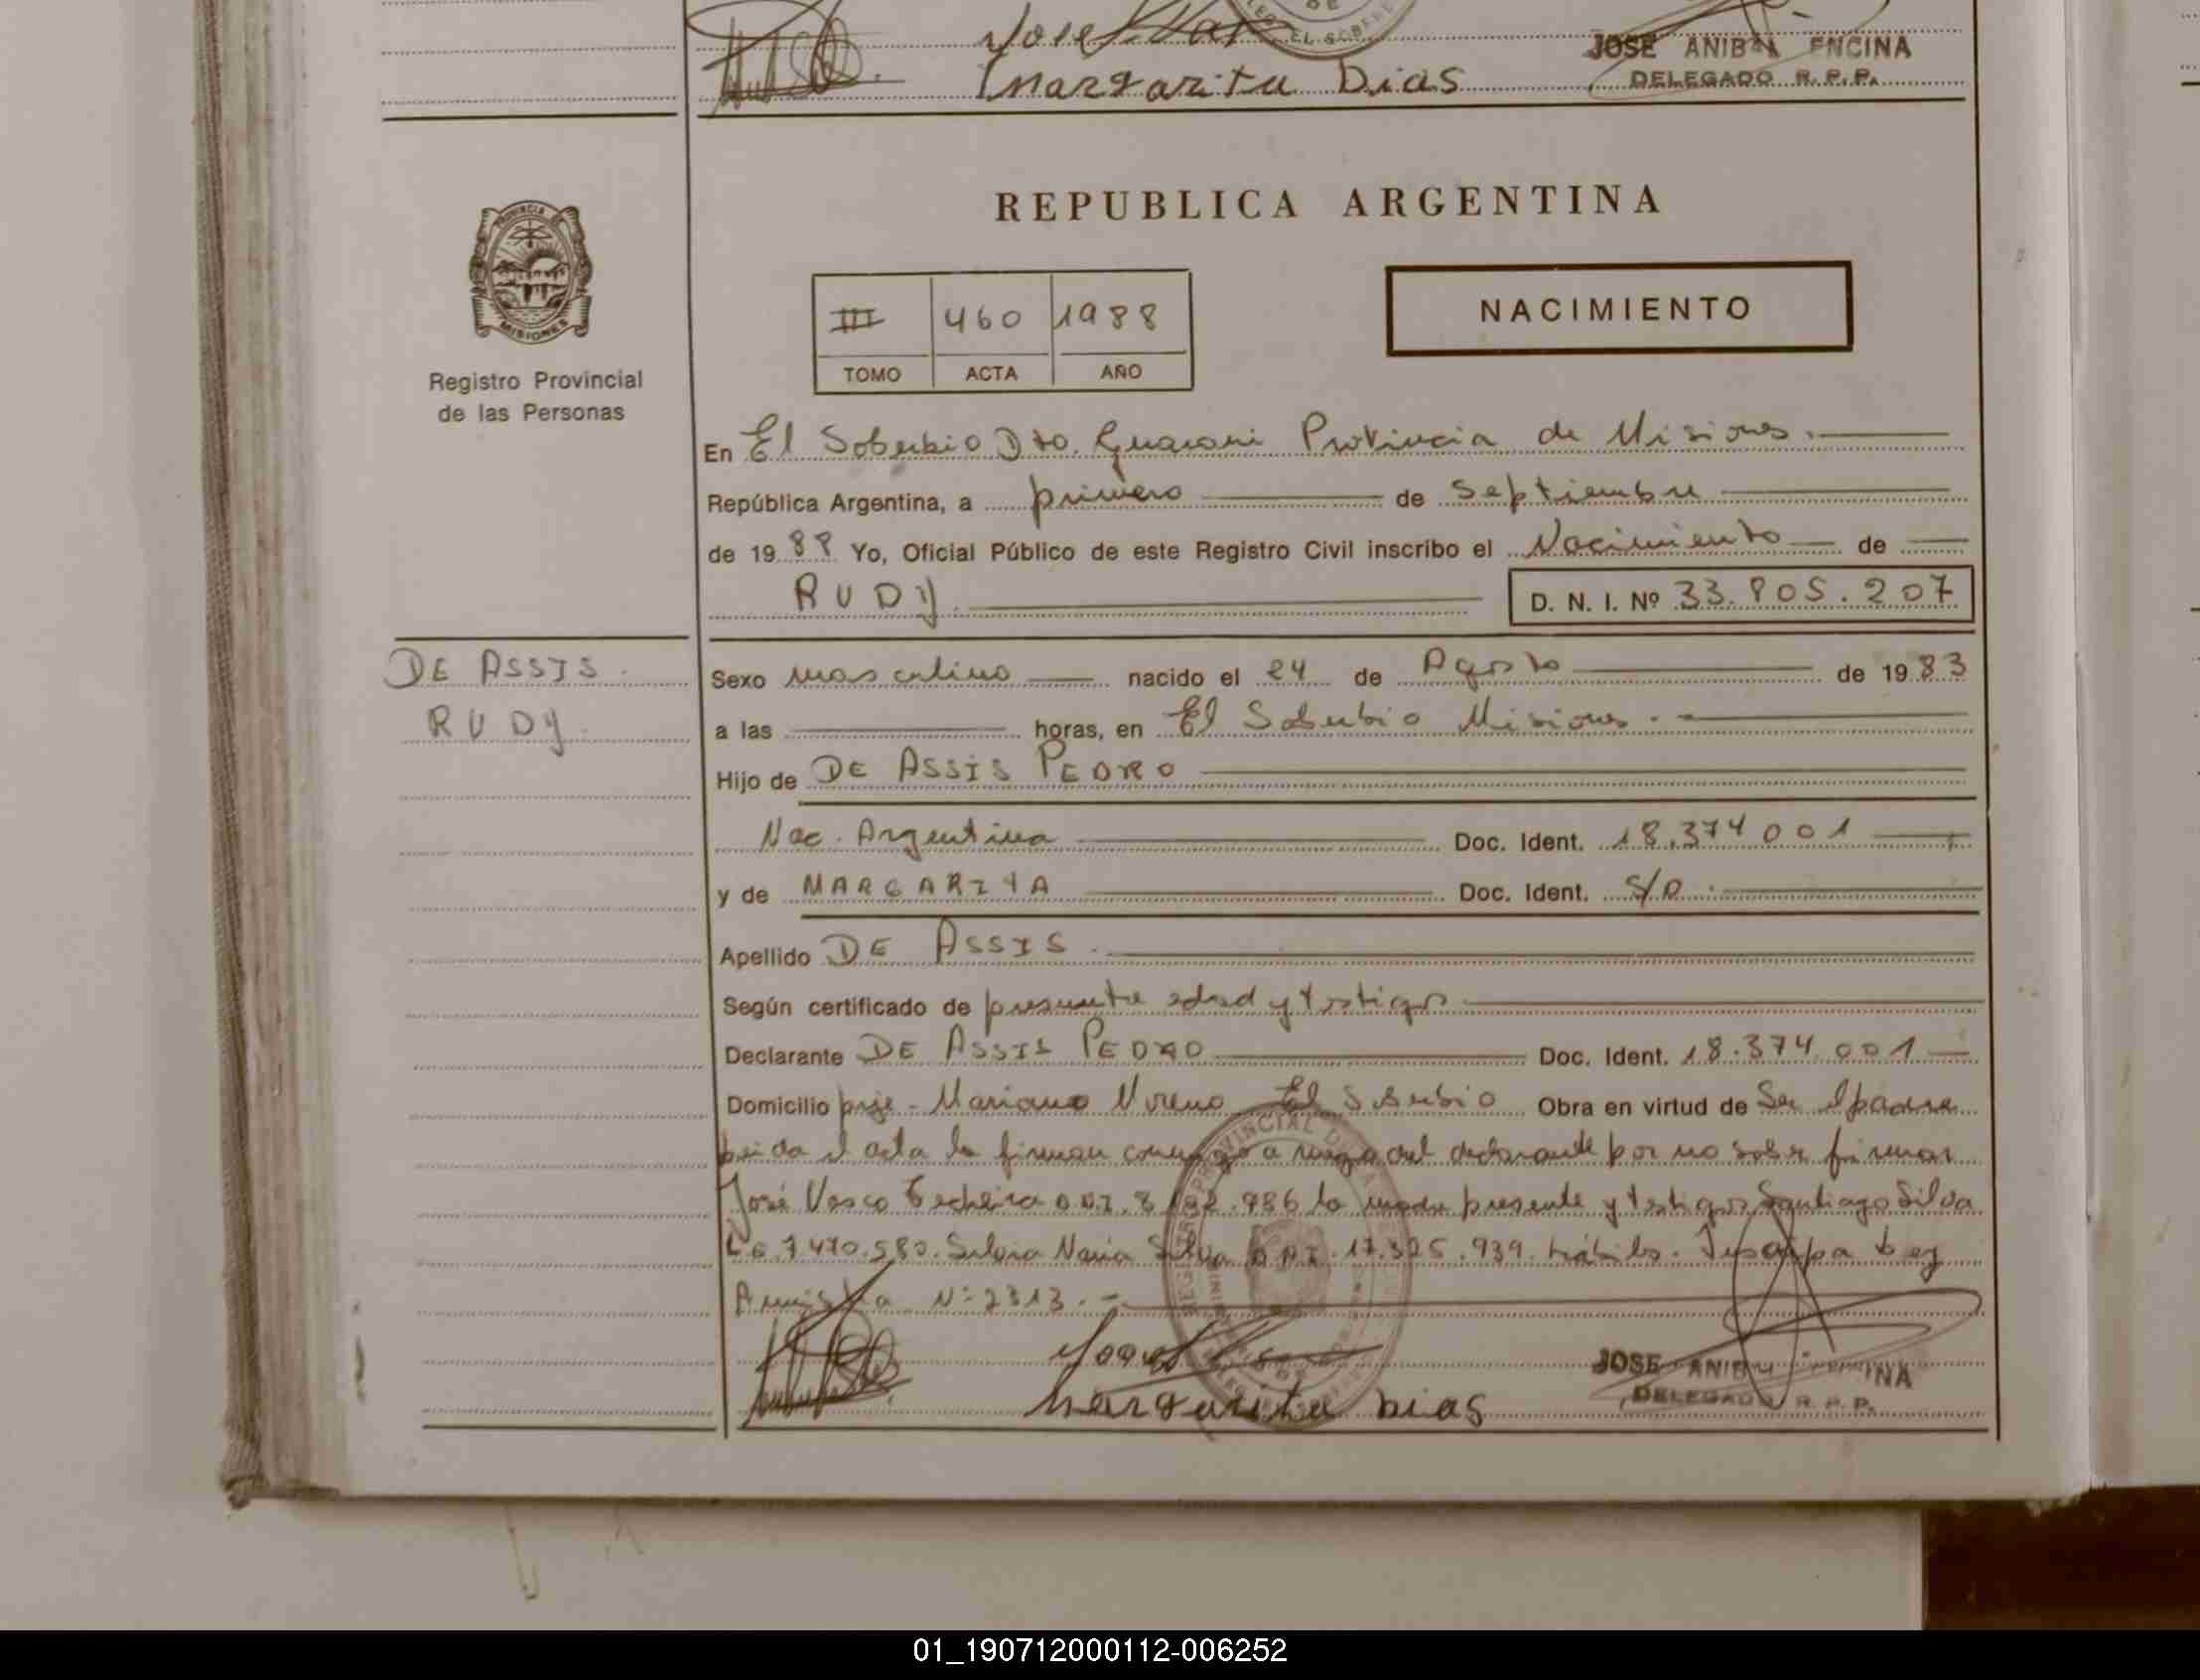 Jose
Margarita Dias
JOSE ANIBAL ENCINA
DELEGADO R.P.P.
PROVINCIA
MISIONES
Registro Provincial
de las Personas
REPUBLICA ARGENTINA
III 460 1988
TOMO ACTA AÑO
NACIMIENTO
En El Soberbio Dto. Guarani Provincia de Misiones.
República Argentina, a primero de Septiembre
de 1988 Yo, Oficial Público de este Registro Civil inscribo el Nacimiento de
RUDY. D. N. I. Nº 33.805.207
DE ASSIS.
RUDY.
Sexo masculino nacido el 24 de Agosto de 1983
a las horas, en El Soberbio Misiones.
Hijo de DE ASSIS PEDRO
Nac. Argentina Doc. Ident. 18.374001
y de MARGARITA Doc. Ident. S/D.
Apellido DE ASSIS.
Según certificado de presunta edad y testigos
Declarante DE ASSIS PEDRO Doc. Ident. 18.374.001
Domicilio pje. Mariano Moreno El Soberbio Obra en virtud de Ser el padre
leida el acta la firman conmigo a ruego del declarante por no saber firmar
José Vasco Techeira D.N.I. 8 986 la madre presente y testigos Santiago Silva
L.E. 7 470.580. Silvia Maria Silva D.N.I. 17.325.939. hábiles. Inscripta Ley
Amnistia Nº 2313.
Margarita Dias
JOSE ANIBAL ENCINA
DELEGADO R.P.P.
01_190712000112-006252